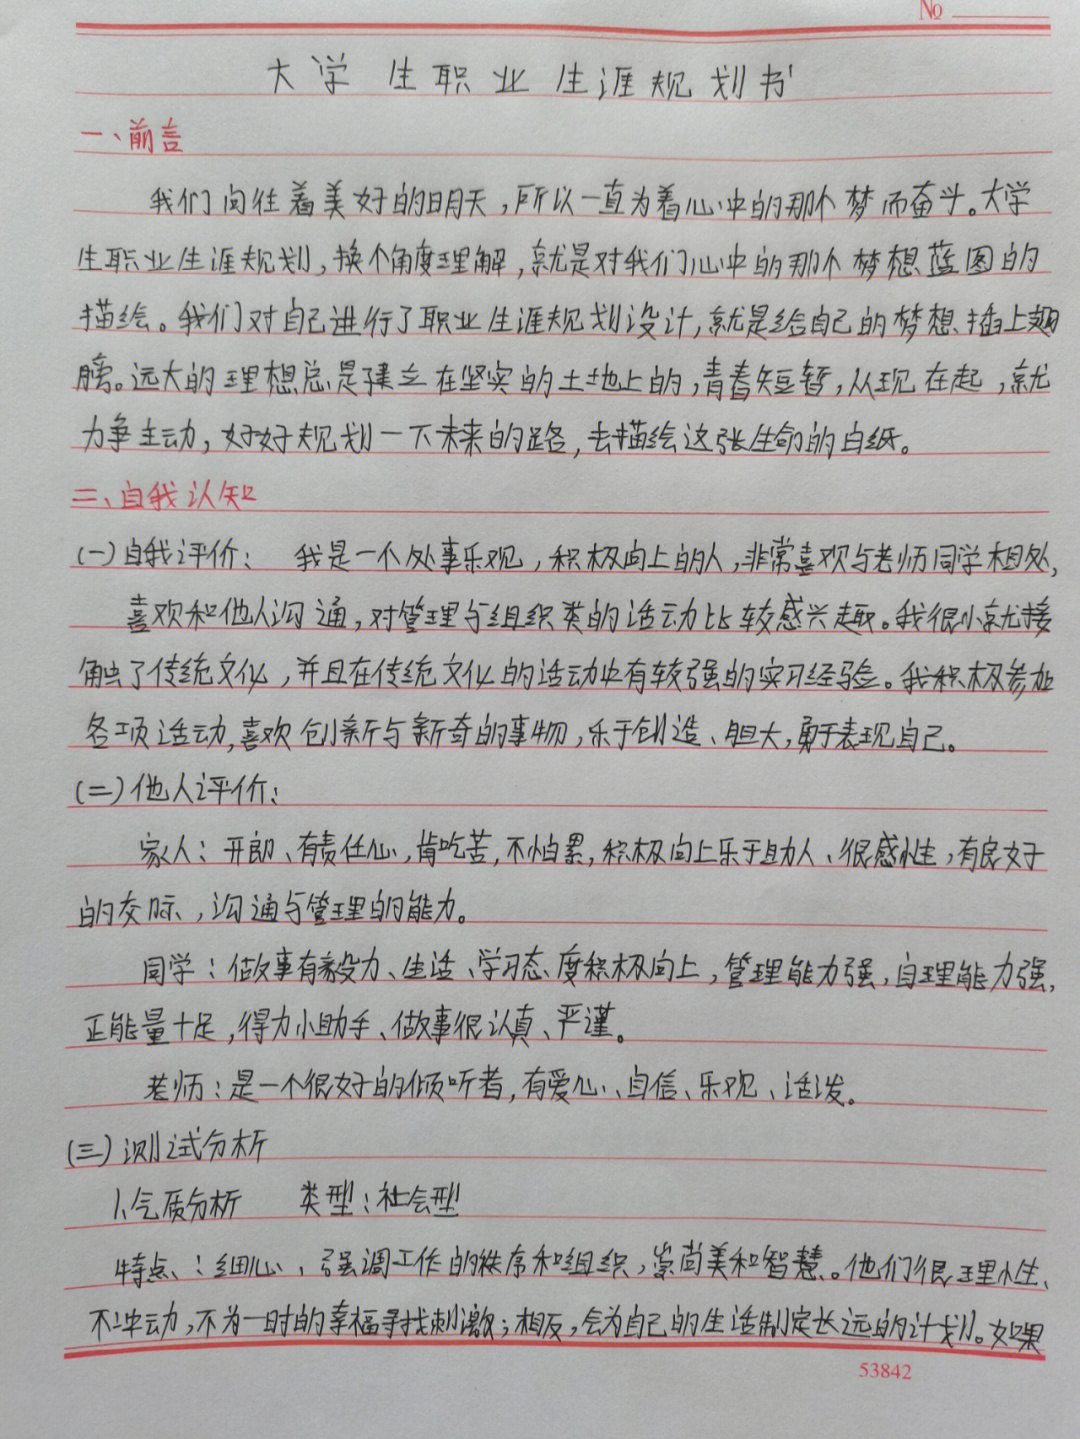 No
大学生职业生涯规划书
一、前言
我们向往着美好的明天，所以一直为着心中的那个梦而奋斗。大学
生职业生涯规划，换个角度理解，就是对我们心中的那个梦想蓝图的
描绘。我们对自己进行了职业生涯规划设计，就是给自己的梦想、插上翅
膀。远大的理想总是建立在坚实的土地上的，青春短暂，从现在起，就
力争主动，好好规划一下未来的路，去描绘这张生命的白纸。
二、自我认知
(一)自我评价： 我是一个处事乐观，积极向上的人，非常喜欢与老师同学相处，
喜欢和他人沟通，对管理与组织类的活动比较感兴趣。我很小就接
触了传统文化，并且在传统文化的活动中有较强的实习经验。我积极参加
各项活动，喜欢创新与新奇的事物，乐于创造、胆大，勇于表现自己。
(二)他人评价：
家人：开朗、有责任心，肯吃苦，不怕累，积极向上乐于助人、很感性，有良好
的交际，沟通与管理的能力。
同学：做事有毅力、生活、学习态度积极向上，管理能力强，自理能力强，
正能量十足，得力小助手、做事很认真、严谨。
老师：是一个很好的倾听者，有爱心、自信、乐观、活泼。
(三)测试分析
1、气质分析 类型：社会型
特点、：细心、，强调工作的秩序和组织，崇尚美和智慧。他们很理性、
不冲动，不为一时的幸福寻找刺激；相反，会为自己的生活制定长远的计划。如果
53842